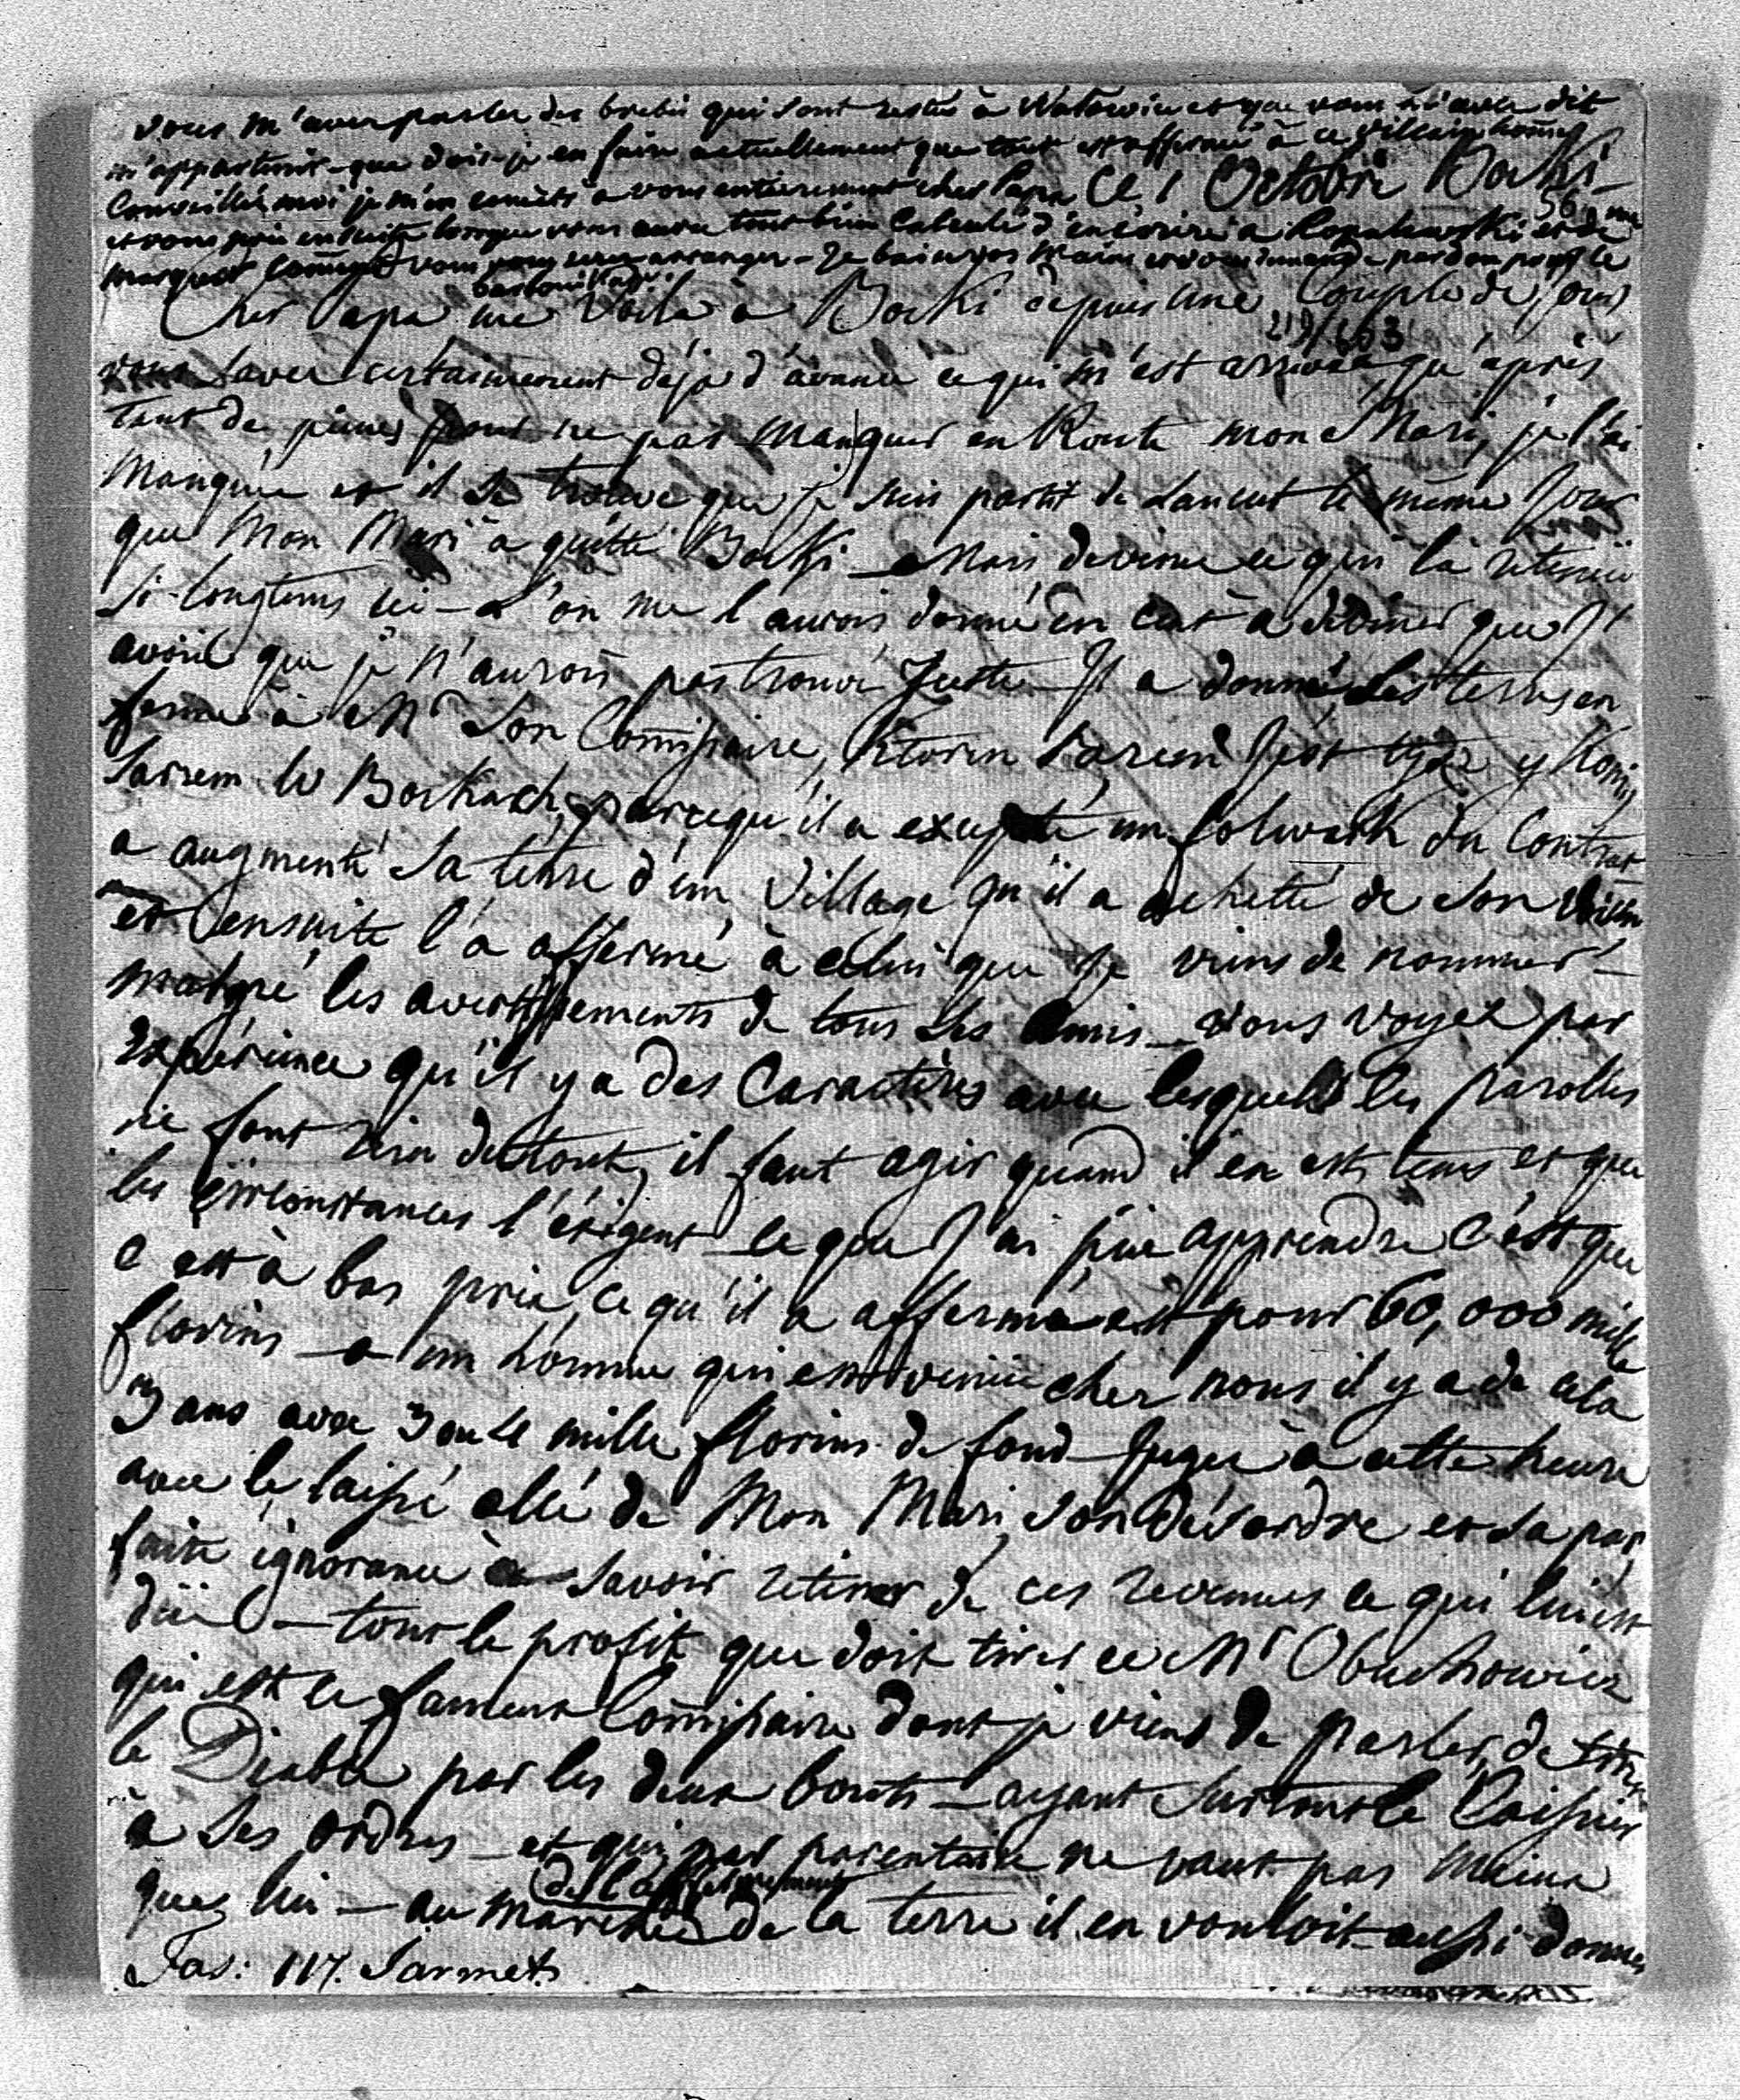 vous m'avez parler des brebis qui sont restée à Watowice et que vous m'avez dit
m'appartenir - que dois-je en faire actuellement que tout est affermé à ce villain homme
Conseillés moi je m'en remets à vous entierement cher Papa Ce 1 Octobre Boćki
et vous prie ensuite lorsque vous aurez tout bien calculé d'en écrire à Kowalewski et de
marquer comment vous vous serez arranger - Je baise vos mains et vous demande pardon pour le
barbouillage.
Cher Papa me voila à Boćki depuis une Couple de jours
219/603
vous savez certainement déja d'avance ce qui m'est arrivée, qu'après
tant de peines pour ne pas manquer en Route mon Mari, je l'ai
Manquée et il se trouve que je suis partit de Lancut le même Jour
que Mon Mari à quitté Boćki - Mais devine ce qui l'a retenüe
si longtems ici - l'on me l'aurois donné en cent à deviner que J'
avoüe que je n'aurois pas trouvé Juste - Il a donné les terres en
ferme à Mr son Commissaire, Ktoren Panem Jest
Panem w Boćkach, parcequ'il a excepté un folwark du Contrat
a augmenté sa terre d'un Village qu'il a achetté de son
et ensuite l'a affermé à celui que je viens de nommer -
malgré les avertissements de tous ses Amis - vous voyez par
Expérience qu'il y a des Caractères avec lesquels les parolles
ne font rien du tout, il faut agir quand il en est tems et que
les circonstances l'éxigent - ce que J'ai püe apprendre c'est que
c'est à bas prix, ce qu'il a affermé est pour 60,000 mille
florins - a un homme qui est venüe chez nous il y a de cela
3 ans avec 3 ou 4 mille florins de fond - Jugez à cette heure
avec le laissé allé de Mon Mari, son Désordre et sa par
faite ignorance à savoir retirer de ces revenues ce qui lui est
düe - tout le profit que doit tirer ce Mr Obuchowicz
qui est ce fameux Commissaire dont je viens de parler, de
le Diable par les deux bouts - ayant surtout le Caissier
à ses ordres - et qui par parentaise ne vaut pas mieux
que lui - au marché de l'affermement de la terre il en vouloit aussi donner
Fas: 117. Sarmet.